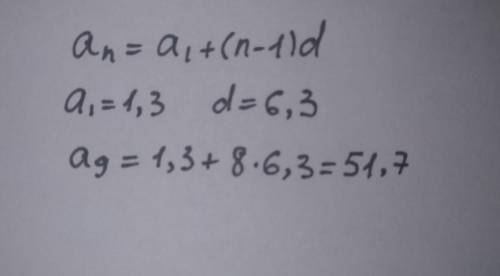 aₙ = a₁ + (n-1)d
a₁ = 1,3 d = 6,3
a₉ = 1,3 + 8·6,3 = 51,7